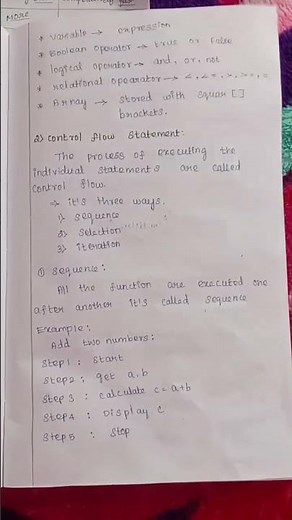 MORE
* Variable → expression
* Boolean operator → true or False
* logical operator → and, or, not
* Relational opearator → <, <=, >, >=, =
* Array → stored with squar [ ]
brackets.
2) control flow statement:
The process of executing the
individual statements are called
control flow.
→ it's three ways.
1) sequence
2) selection
3) iteration
① sequence:
All the function are executed one
after another it's called sequence
Example:
Add two numbers:
Step 1 : Start
Step 2 : get a, b
Step 3 : calculate c = a+b
Step 4 : Display c
Step 5 : Stop